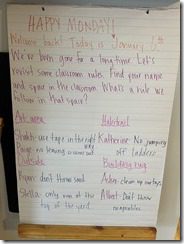 HAPPY MONDAY!
Welcome back! Today is January 6th
We've been gone for a long time. Let's
revisit some classroom rules. Find your name
and space in the classroom. What's a rule we
follow in that space?
Art area
Shakti- use tape in the right way
no leaving
Katherine- No jumping
off ladders
Outside
Building rug
Ryan- don't throw sand
Aden- clean up our toys
Stella- only run at the
top of the yard
Albert- Don't throw